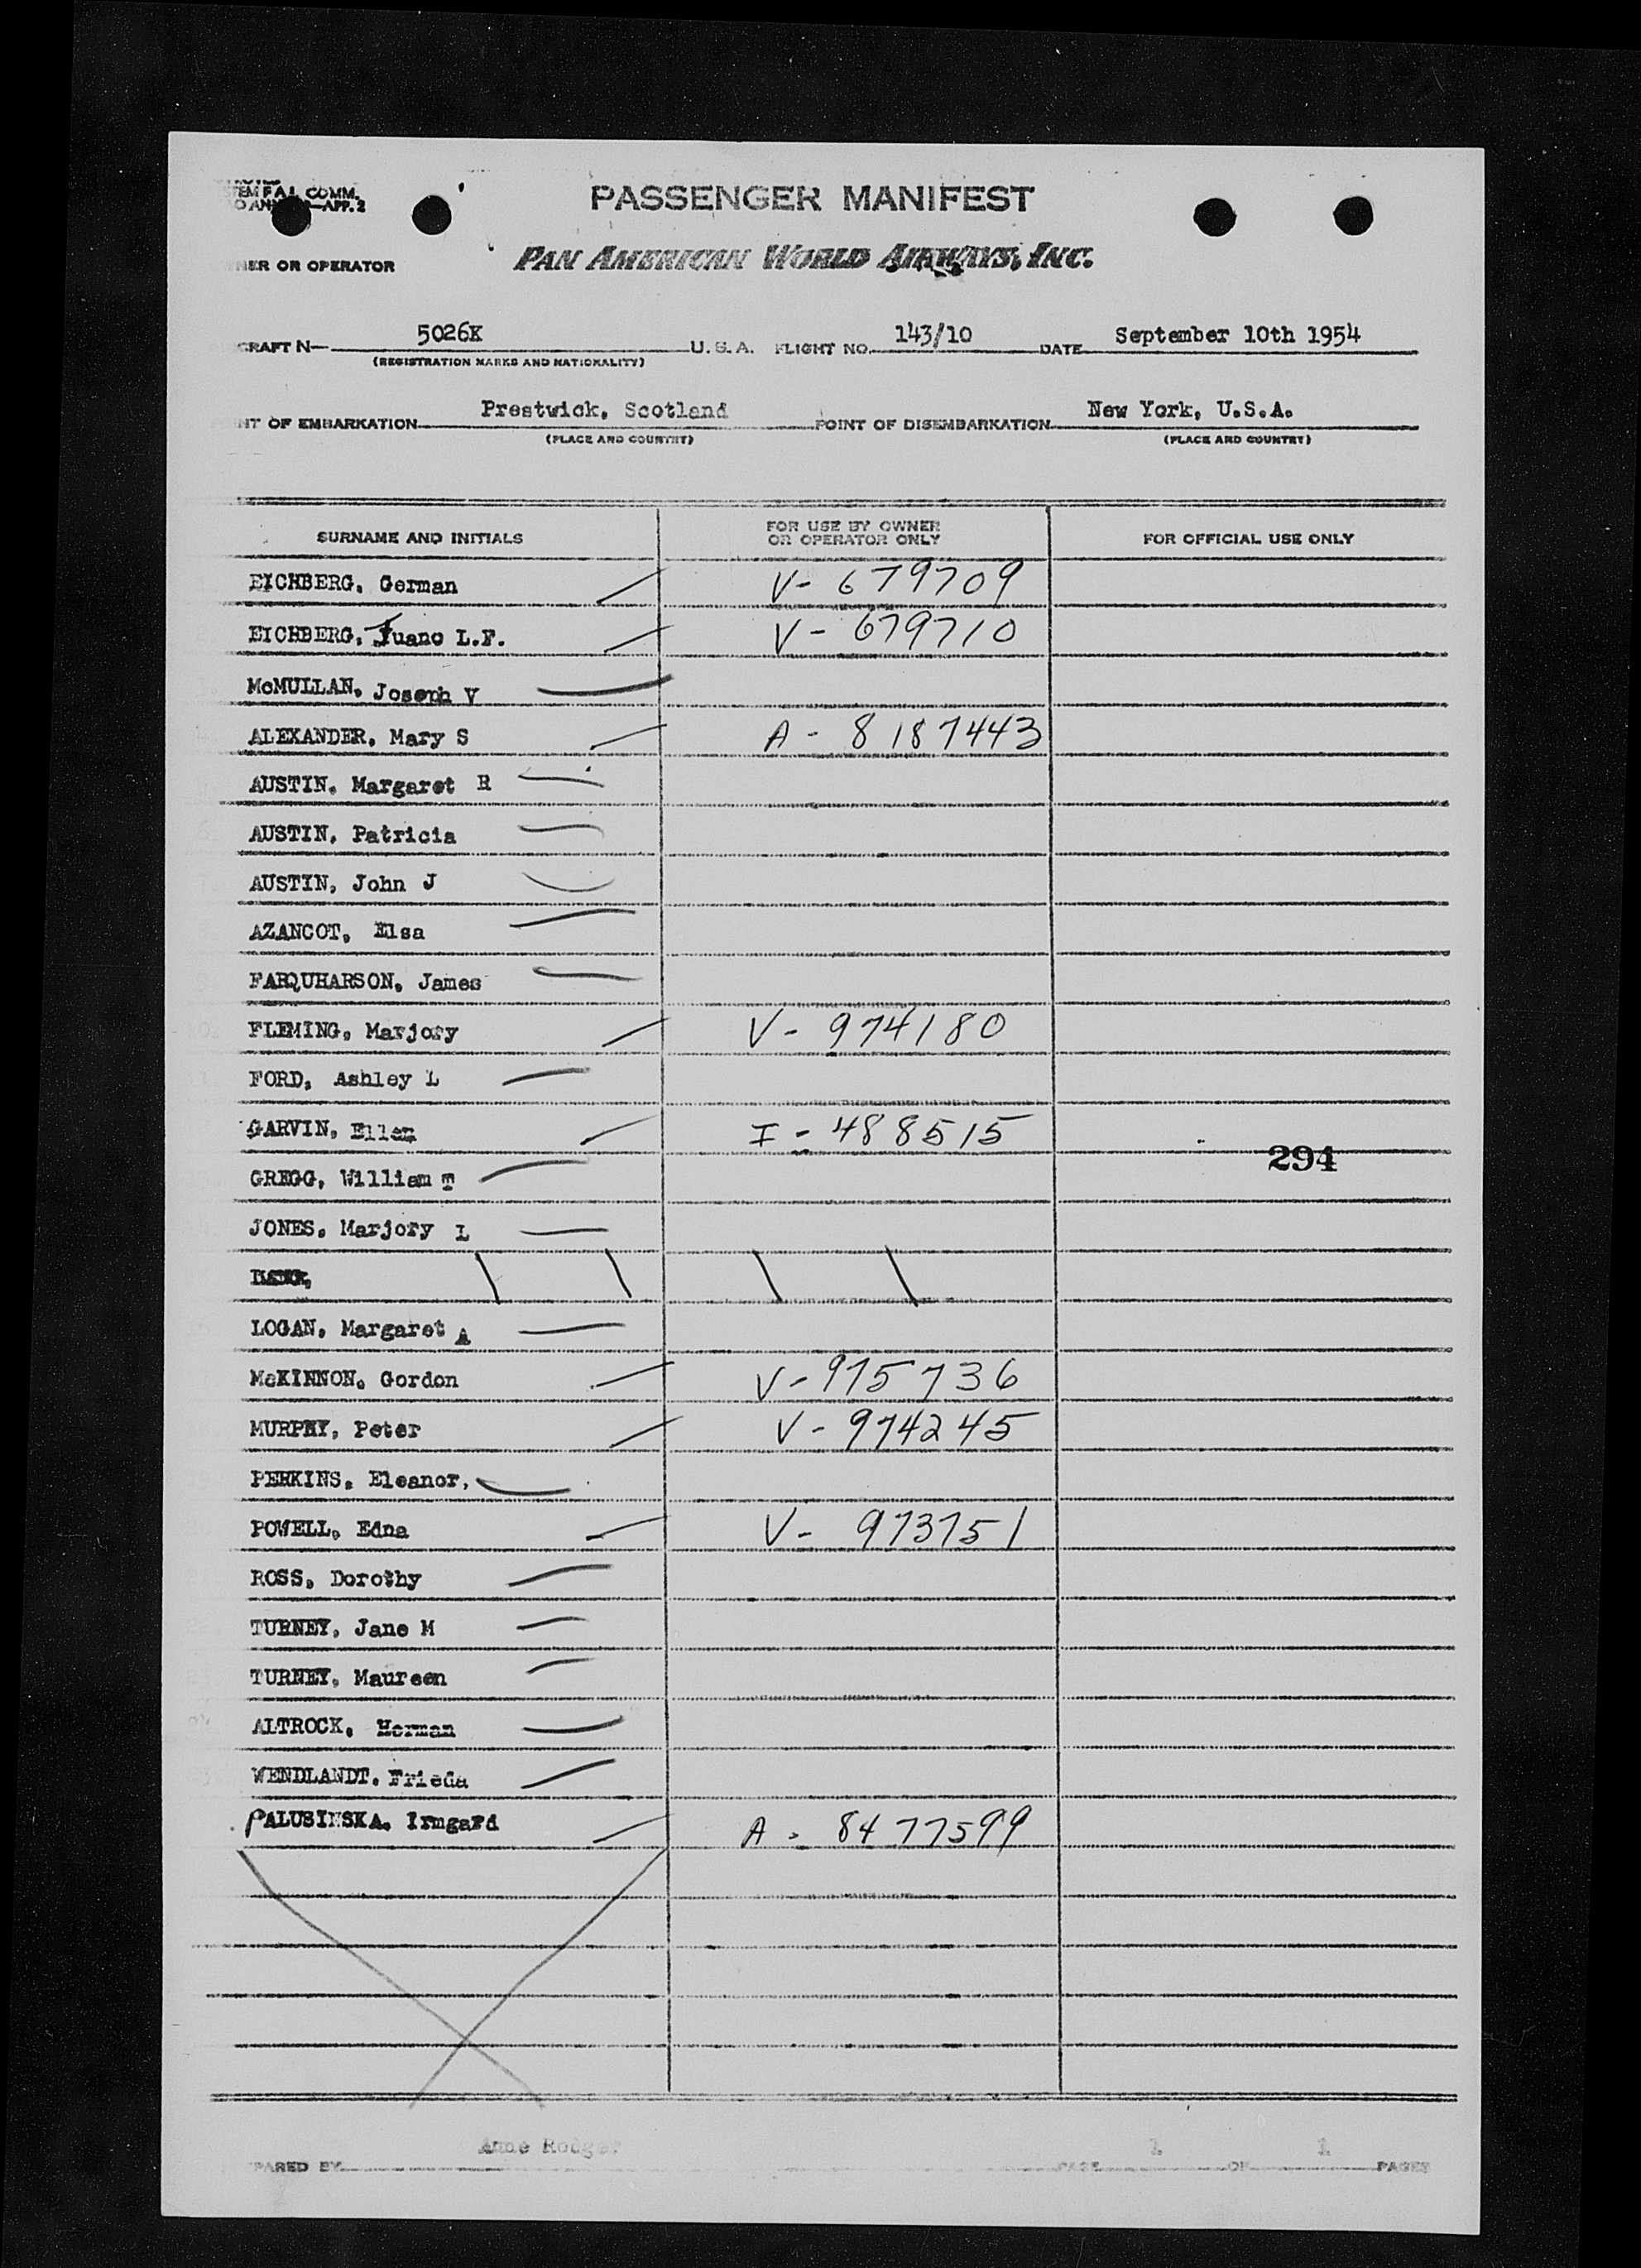 TEM F.A.L. COMM.
APP. 2
PASSENGER MANIFEST
NER OR OPERATOR PAN AMERICAN WORLD AIRWAYS, INC.
CRAFT N— 5026K U.S.A. FLIGHT NO. 143/10 DATE September 10th 1954
(REGISTRATION MARKS AND NATIONALITY)
NT OF EMBARKATION Prestwick, Scotland POINT OF DISEMBARKATION New York, U.S.A.
(PLACE AND COUNTRY) (PLACE AND COUNTRY)
SURNAME AND INITIALS FOR USE BY OWNER OR OPERATOR ONLY FOR OFFICIAL USE ONLY
EICHBERG, German V- 679709
EICHBERG, Juano L.F. V- 679710
McMULLAN, Joseph V
ALEXANDER, Mary S A- 8187443
AUSTIN, Margaret R
AUSTIN, Patricia
AUSTIN, John J
AZANCOT, Elsa
FARQUHARSON, James
FLEMING, Marjory V- 974180
FORD, Ashley L
GARVIN, Ellen I- 488515
294
GREGG, William T
JONES, Marjory L
LOGAN, Margaret A
McKINNON, Gordon V-975736
MURPHY, Peter V- 974245
PERKINS, Eleanor,
POWELL, Edna V- 973751
ROSS, Dorothy
TURNEY, Jane M
TURNEY, Maureen
ALTROCK, Herman
WENDLANDT, Frieda
PALUSINSKA, Irmgard A- 8477599
Anne Rodger 1 1
PARED BY PAGE OF PAGES